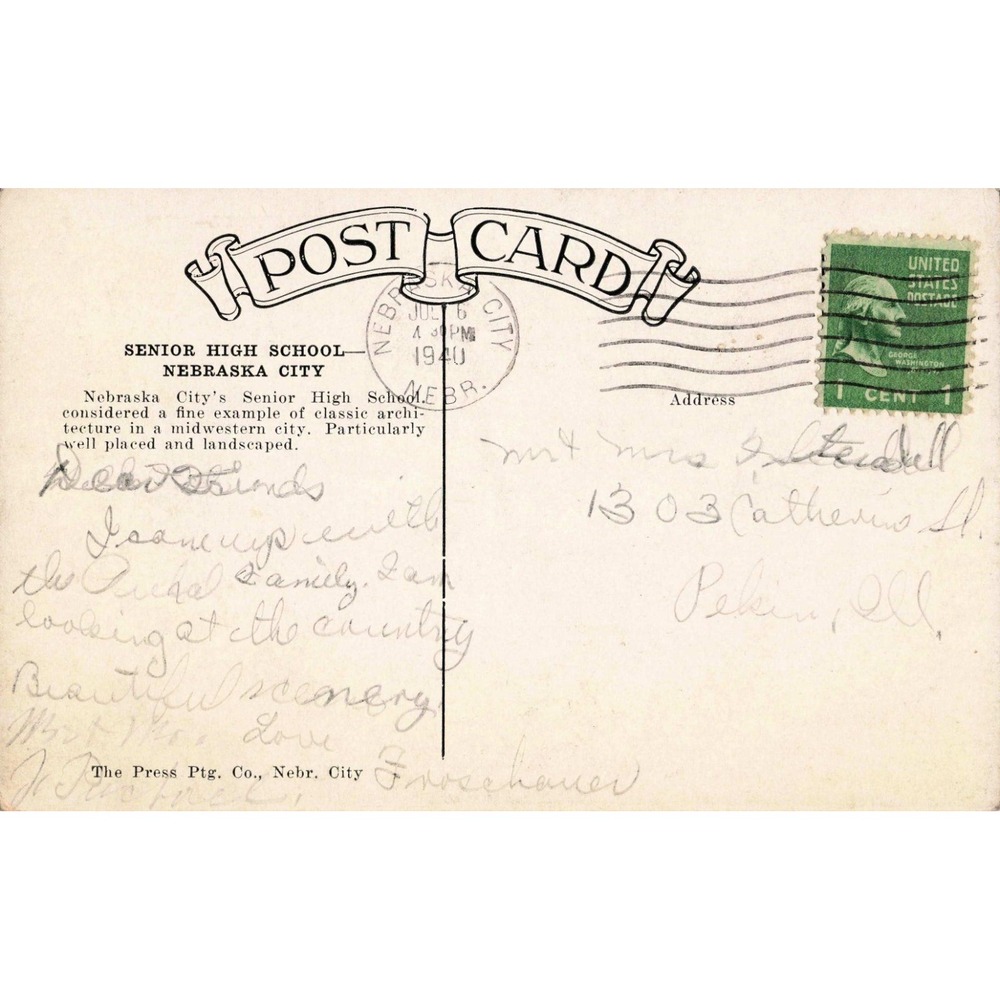 POST CARD
NEBRASKA CITY
JUL 6
4 30 PM
1940
NEBR.
UNITED
STATES
POSTAGE
GEORGE
WASHINGTON
1 CENT 1
SENIOR HIGH SCHOOL—
NEBRASKA CITY
Nebraska City's Senior High School,
considered a fine example of classic archi-
tecture in a midwestern city. Particularly
well placed and landscaped.
Address
Mr & Mrs
1303 Catherine St.
Pekin, Ill.
Dear Friends
I came up with
the Family. I am
looking at the country
Beautiful scenery.
Love
Froschauer
The Press Ptg. Co., Nebr. City